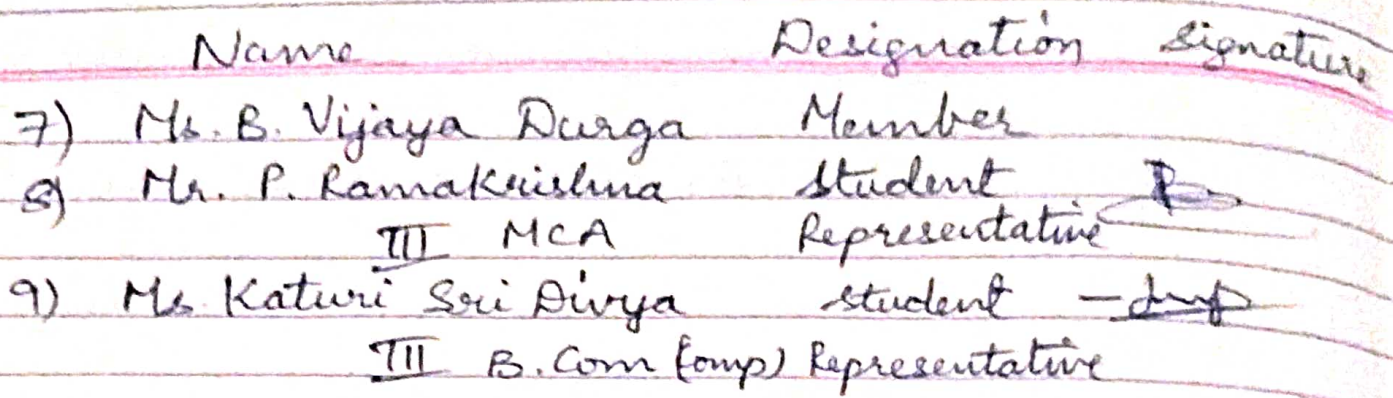 Name Designation Signature
7) Ms. B. Vijaya Durga Member
8) Mr. P. Ramakrishna Student
III MCA Representative
9) Ms Katuri Sri Divya student
III B. Com (omp) Representative